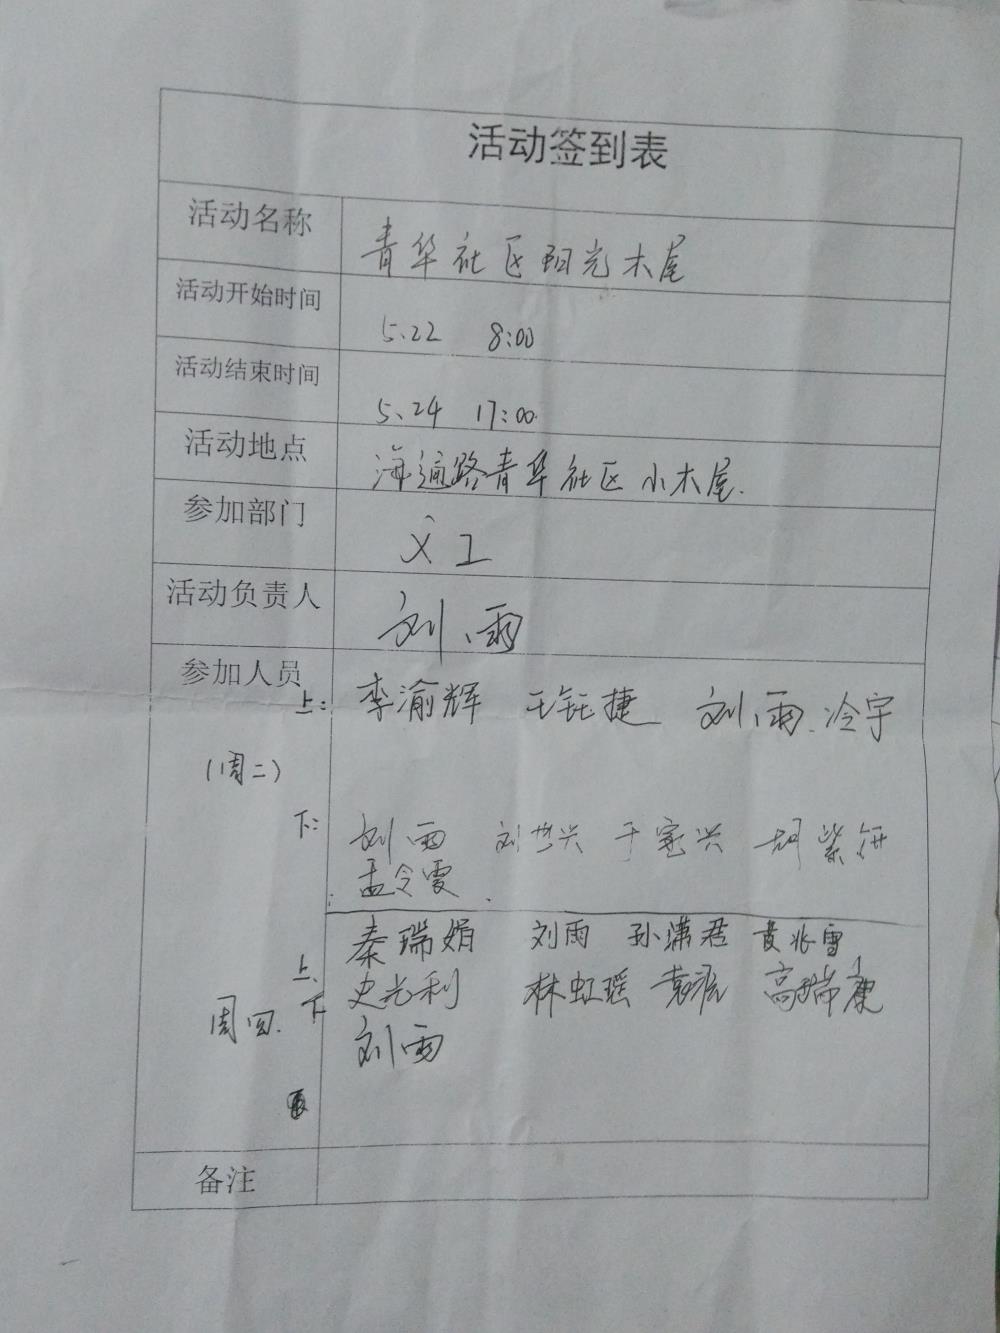 活动签到表
活动名称 青华社区阳光木屋
活动开始时间 5.22 8:00
活动结束时间 5.24 17:00
活动地点 海通路青华社区小木屋.
参加部门 义工
活动负责人 刘雨
参加人员
上: 李渝辉 王钰捷 刘雨 冷宇
(周二)
下: 刘雨 刘世兴 于宪兴 胡紫钰
孟令雯
上 秦瑞娟 刘雨 孙潇君 黄兆雪
周四. 下 史光利 林虹瑶 高瑞康
刘雨
备注